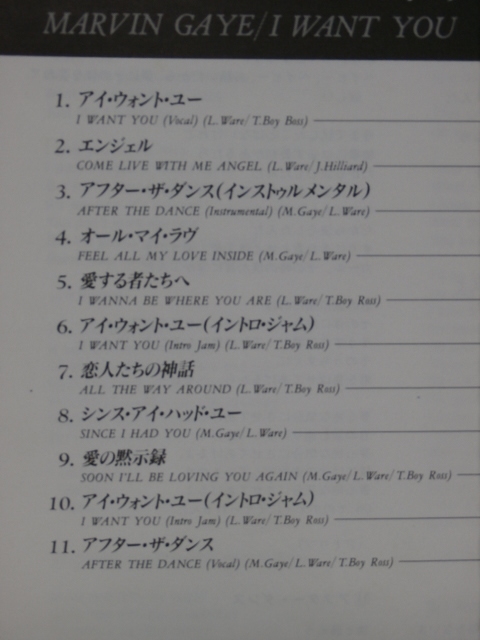 MARVIN GAYE/I WANT YOU
1. アイ・ウォント・ユー
I WANT YOU (Vocal) (L. Ware/T.Boy Boss)
2. エンジェル
COME LIVE WITH ME ANGEL (L. Ware/J.Hilliard)
3. アフター・ザ・ダンス(インストゥルメンタル)
AFTER THE DANCE (Instrumental) (M.Gaye/L. Ware)
4. オール・マイ・ラヴ
FEEL ALL MY LOVE INSIDE (M.Gaye/L. Ware)
5. 愛する者たちへ
I WANNA BE WHERE YOU ARE (L. Ware/T.Boy Ross)
6. アイ・ウォント・ユー(イントロ・ジャム)
I WANT YOU (Intro Jam) (L. Ware/T.Boy Ross)
7. 恋人たちの神話
ALL THE WAY AROUND (L. Ware/T.Boy Ross)
8. シンス・アイ・ハッド・ユー
SINCE I HAD YOU (M.Gaye/L. Ware)
9. 愛の黙示録
SOON I'LL BE LOVING YOU AGAIN (M.Gaye/L. Ware/T.Boy Ross)
10. アイ・ウォント・ユー(イントロ・ジャム)
I WANT YOU (Intro Jam) (L. Ware/T.Boy Ross)
11. アフター・ザ・ダンス
AFTER THE DANCE (Vocal) (M.Gaye/L. Ware/T.Boy Ross)